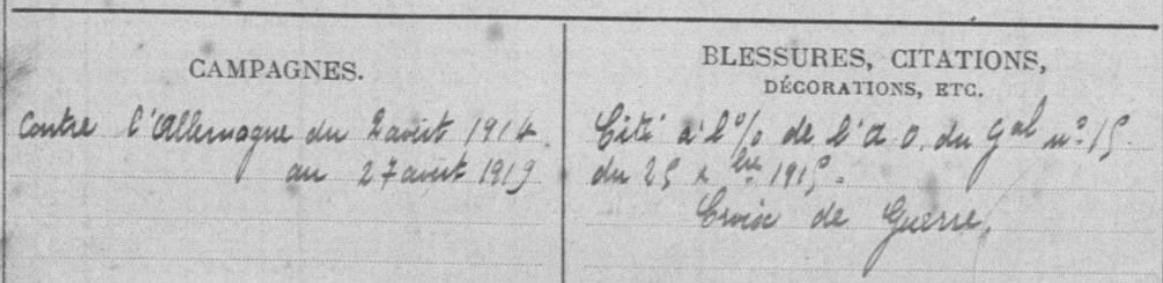 CAMPAGNES.
Contre l'Allemagne du 2 août 1914
au 27 août 1919
BLESSURES, CITATIONS,
DÉCORATIONS, ETC.
Cité à l'o/o de l'A.O. du Gal n° 15
du 25 Xbre 1915.
Croix de Guerre.